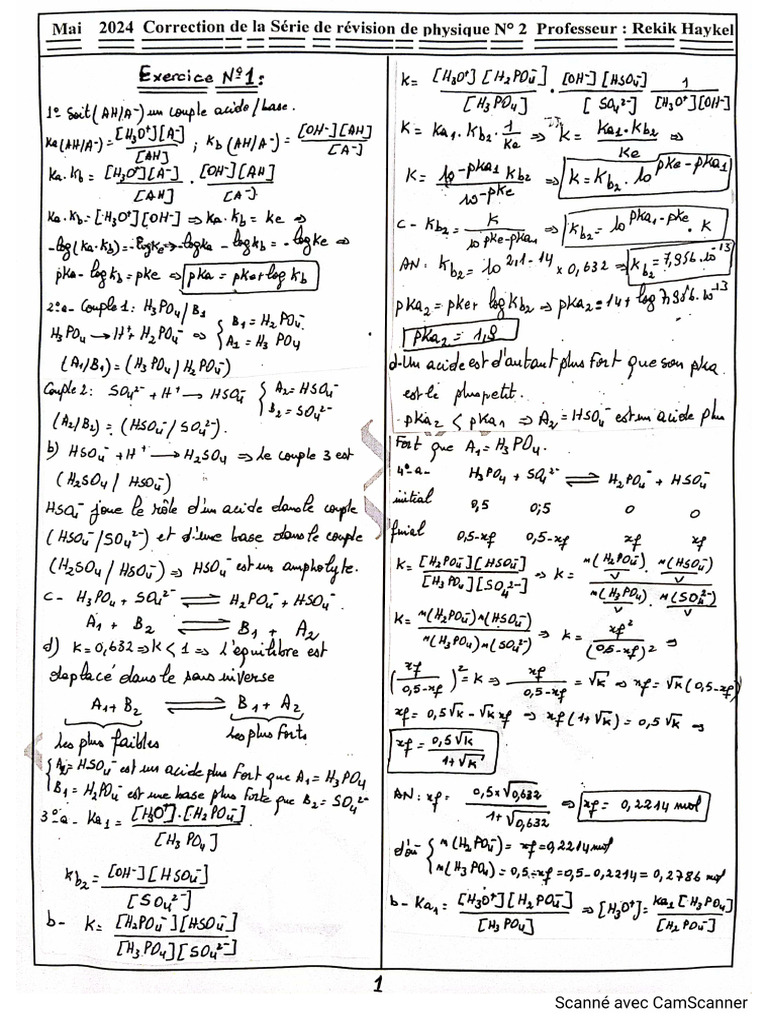 Mai 2024 Correction de la Série de révision de physique N° 2 Professeur : Rekik Haykel
Exercice N°1 :
1° Soit (AH/A⁻) un couple acide/base.
Ka(AH/A⁻) = [H₃O⁺][A⁻]/[AH] ; Kb(AH/A⁻) = [OH⁻][AH]/[A⁻]
Ka.Kb = [H₃O⁺][A⁻]/[AH] . [OH⁻][AH]/[A⁻]
Ka.Kb = [H₃O⁺][OH⁻] ⇒ Ka.Kb = Ke ⇒
-log(Ka.Kb) = -logKe ⇒ -logKa - logKb = -logKe ⇒
pKa - logKb = pKe ⇒ pKa = pKe + logKb
2°a- Couple 1 : H₃PO₄/B₁
H₃PO₄ → H⁺ + H₂PO₄⁻ ⇒ { B₁ = H₂PO₄⁻
A₁ = H₃PO₄
(A₁/B₁) = (H₃PO₄/H₂PO₄⁻)
Couple 2 : SO₄²⁻ + H⁺ → HSO₄⁻ { A₂ = HSO₄⁻
B₂ = SO₄²⁻
(A₂/B₂) = (HSO₄⁻/SO₄²⁻).
b) HSO₄⁻ + H⁺ → H₂SO₄ ⇒ le couple 3 est
(H₂SO₄/HSO₄⁻)
HSO₄⁻ joue le rôle d'un acide dans le couple
(HSO₄⁻/SO₄²⁻) et d'une base dans le couple
(H₂SO₄/HSO₄⁻) ⇒ HSO₄⁻ est un ampholyte.
c- H₃PO₄ + SO₄²⁻ ⇌ H₂PO₄⁻ + HSO₄⁻
A₁ + B₂ ⇌ B₁ + A₂
d) K = 0,632 ⇒ K < 1 ⇒ l'équilibre est
deplacé dans le sens inverse
A₁ + B₂ ⇌ B₁ + A₂
les plus faibles les plus forts
{ A₂ = HSO₄⁻ est un acide plus fort que A₁ = H₃PO₄
B₁ = H₂PO₄⁻ est une base plus forte que B₂ = SO₄²⁻
3°a- Ka₁ = [H₃O⁺].[H₂PO₄⁻]/[H₃PO₄]
Kb₂ = [OH⁻][HSO₄⁻]/[SO₄²⁻]
b- K = [H₂PO₄⁻][HSO₄⁻]/[H₃PO₄][SO₄²⁻]
K = [H₃O⁺][H₂PO₄⁻]/[H₃PO₄] . [OH⁻][HSO₄⁻]/[SO₄²⁻] . 1/[H₃O⁺][OH⁻]
K = Ka₁.Kb₂.1/Ke ⇒ K = Ka₁.Kb₂/Ke ⇒
K = 10^-pKa₁ Kb₂/10^-pKe ⇒ K = Kb₂.10^pKe-pKa₁
c- Kb₂ = K/10^pKe-pKa₁ ⇒ Kb₂ = 10^pKa₁-pKe . K
AN : Kb₂ = 10^2,1-14 × 0,632 ⇒ Kb₂ = 7,956.10⁻¹³
pKa₂ = pKe + logKb₂ ⇒ pKa₂ = 14 + log7,956.10⁻¹³
pKa₂ = 1,9
d- Un acide est d'autant plus fort que son pKa
est le plus petit.
pKa₂ < pKa₁ ⇒ A₂ = HSO₄⁻ est un acide plus
fort que A₁ = H₃PO₄.
4°-a- H₃PO₄ + SO₄²⁻ ⇌ H₂PO₄⁻ + HSO₄⁻
initial 0,5 0,5 0 0
final 0,5-xf 0,5-xf xf xf
K = [H₂PO₄⁻][HSO₄⁻]/[H₃PO₄][SO₄²⁻] ⇒ K = n(H₂PO₄⁻)/V . n(HSO₄⁻)/V / n(H₃PO₄)/V . n(SO₄²⁻)/V
K = n(H₂PO₄⁻)n(HSO₄⁻)/n(H₃PO₄)n(SO₄²⁻) ⇒ K = xf²/(0,5-xf)² ⇒
(xf/0,5-xf)² = K ⇒ xf/0,5-xf = √K ⇒ xf = √K(0,5-xf)
xf = 0,5√K - √K xf ⇒ xf(1+√K) = 0,5√K ⇒
xf = 0,5√K/1+√K
AN : xf = 0,5×√0,632/1+√0,632 ⇒ xf = 0,2214 mol
d'où { n(H₂PO₄⁻) = xf = 0,2214 mol
n(H₃PO₄) = 0,5-xf = 0,5-0,2214 = 0,2786 mol
b- Ka₁ = [H₃O⁺][H₂PO₄⁻]/[H₃PO₄] ⇒ [H₃O⁺] = Ka₁[H₃PO₄]/[H₂PO₄⁻]
1
Scanné avec CamScanner